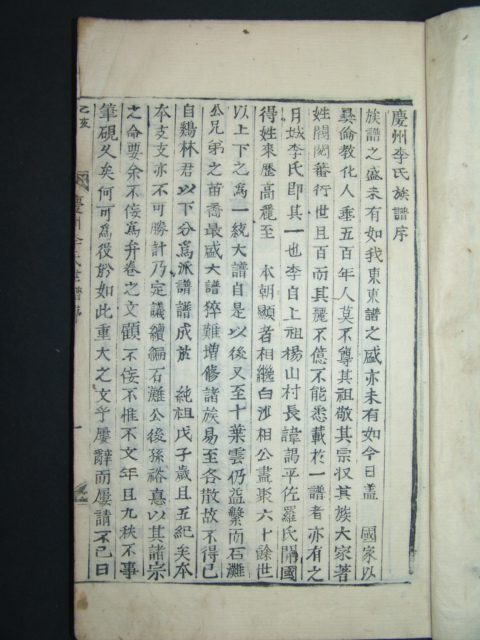 慶州李氏族譜序
族譜之盛未有如我東東譜之盛亦未有如今日盖　國家以
彛倫敎化人垂五百年人莫不尊其祖敬其宗収其族大家著
姓閥閱蕃衍世且百而其麗不億不能悉載於一譜者亦有之
月城李氏即其一也李自上祖楊山村長諱謁平佐羅氏開國
得姓來歷高麗至　本朝顯者相繼白沙相公盡裒六十餘世
以上下之爲一統大譜自是以後又至十葉雲仍益繁而石灘
公兄弟之苗裔最盛大譜猝難增修諸族易至各散故不得已
自鷄林君以下分爲派譜譜成於　純祖戊子歲且五紀矣本
本支支亦不可勝計乃定議續編石灘公後孫裕憙以其諸宗
之命要余不侫爲弁卷之文顧不侫不惟不文年且九秩不事
筆硯久矣何可爲役於如此重大之文乎屢辭而屢請不已曰
乙亥
慶州李氏世譜序
一